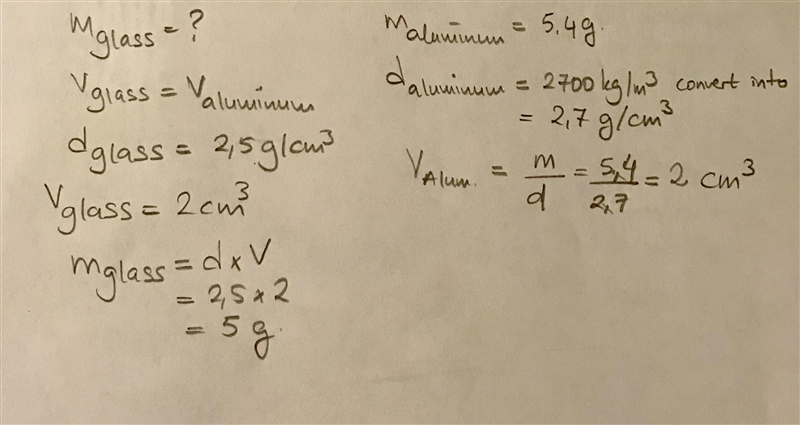 m glass = ?
V glass = V aluminum
d glass = 2,5 g/cm³
V glass = 2 cm³
m glass = d x V
= 2,5 x 2
= 5 g.
m aluminum = 5,4 g.
d aluminum = 2700 kg/m³ convert into
= 2,7 g/cm³
V Alum. = m/d = 5,4/2,7 = 2 cm³